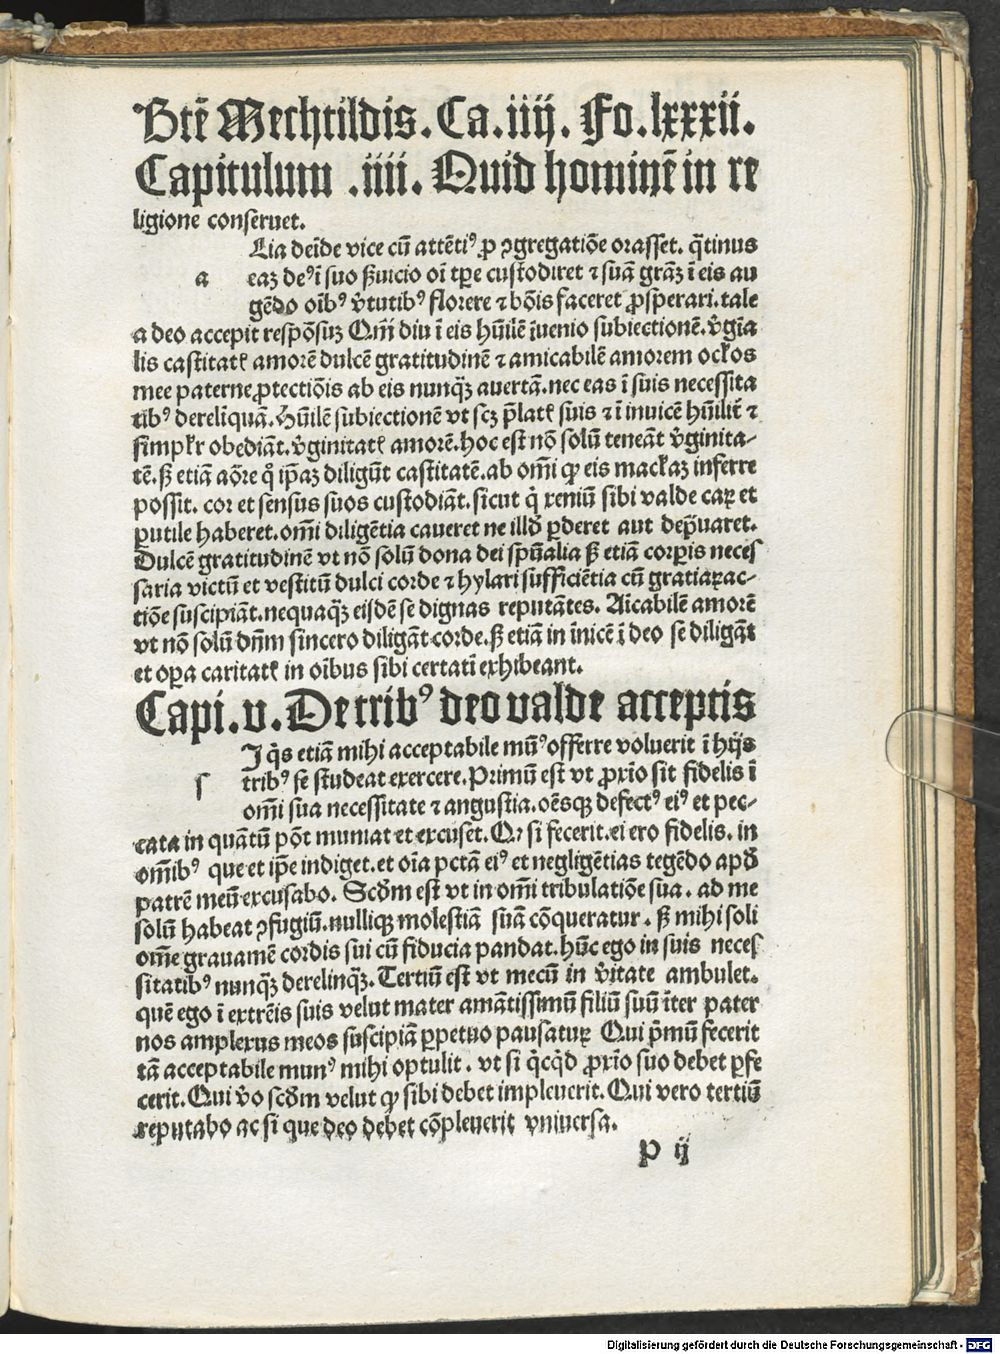 Btē Mechtildis. Ca. iiij. Fo. lxxxii.
Capitulum .iiii. Quid hominē in re
ligione conseruet.
Lia deīde vice cū attētiꝰ ꝓ ꝯgregatiōe orasset. q̄tinus
a eaꝫ deꝰ ī suo ẞuicio oī tp̄e custodiret ⁊ suā gr̄aꝫ ī eis au
gēdo oībꝰ v̄tutibꝰ florere ⁊ bōis faceret ꝓsperari. tale
a deo accepit respōsuꝫ Qm̄ diu ī eis hūilē īuenio subiectionē. v̄gīa
lis castitatꝭ amorē dulcē gratitudinē ⁊ amicabilē amorem ockos
mee paterne ꝓtectiōis ab eis nunqꝫ̄ auertā. nec eas ī suis necessita
tibꝰ derelīquā. Hūilē subiectionē vt scꝫ p̄latꝭ suis ⁊ ī inuicē hūilit̄ ⁊
simpkr obediāt. v̄ginitatꝭ amorē. hoc est nō solū teneāt v̄ginita-
tē. ẞ etiā aōre q̄ ip̄aꝫ diligūt castitatē. ab om̄i qꝫ eis mackaꝫ inferre
possit. cor et sensus suos custodiāt. sicut q̇ xeniū sibi valde caꝝ et
ꝑutile haberet. om̄i diligētia caueret ne illđ ꝑderet aut dep̄uaret.
Dulcē gratitudinē vt nō solū dona dei sp̄ūalia ẞ etiā corꝑis neces
saria victū et vestitū dulci corde ⁊ hylari sufficiētia cū gratiaꝝac-
tiōe suscipiāt. nequaqꝫ̄ eisdē se dignas reputātes. Aīcabilē amorē
vt nō solū dn̄m sincero diligāt corde. ẞ etiā in īnicē ī deo se diligāt
et oꝑa caritatꝭ in oībus sibi certatī exhibeant.
Capi. v. De tribꝰ deo valde acceptis
I q̄s etiā mihi acceptabile mūꝰ offerre voluerit ī hijs
s tribꝰ se studeat exercere. Primū est vt ꝓxīo sit fidelis ī
om̄i sua necessitate ⁊ angustia. oēsqꝫ defectꝰ eiꝰ et pec-
cata in quātū pōt muniat et excuset. Qꝛ si fecerit. ei ero fidelis. in
om̄ibꝰ que et ip̄e indiget. et oīa pctā eiꝰ et negligētias tegēdo apđ
patrē meū excusabo. Scđm est vt in om̄i tribulatiōe sua. ad me
solū habeat ꝯfugiū. nulliqꝫ molestiā suā cōqueratur. ẞ mihi soli
om̄e grauamē cordis sui cū fiducia pandat. hūc ego in suis neces
sitatibꝰ nunqꝫ̄ derelinqꝫ̄. Tertiū est vt mecū in v̄itate ambulet.
quē ego ī extrēis suis velut mater amātissimū filiū suū īter pater
nos amplexus meos suscipiā ꝑpetuo pausatuꝝ Qui p̄mū fecerit
tā acceptabile munꝰ mihi optulit. vt si q̇cq̇d ꝓxīo suo debet ꝑfe
cerit. Qui v̄o scđm velut qꝫ sibi debet impleuerit. Qui vero tertiū
reputabo ac si que deo debet cōpleuerit vniuersa.
P ij
Digitalisierung gefördert durch die Deutsche Forschungsgemeinschaft - DFG